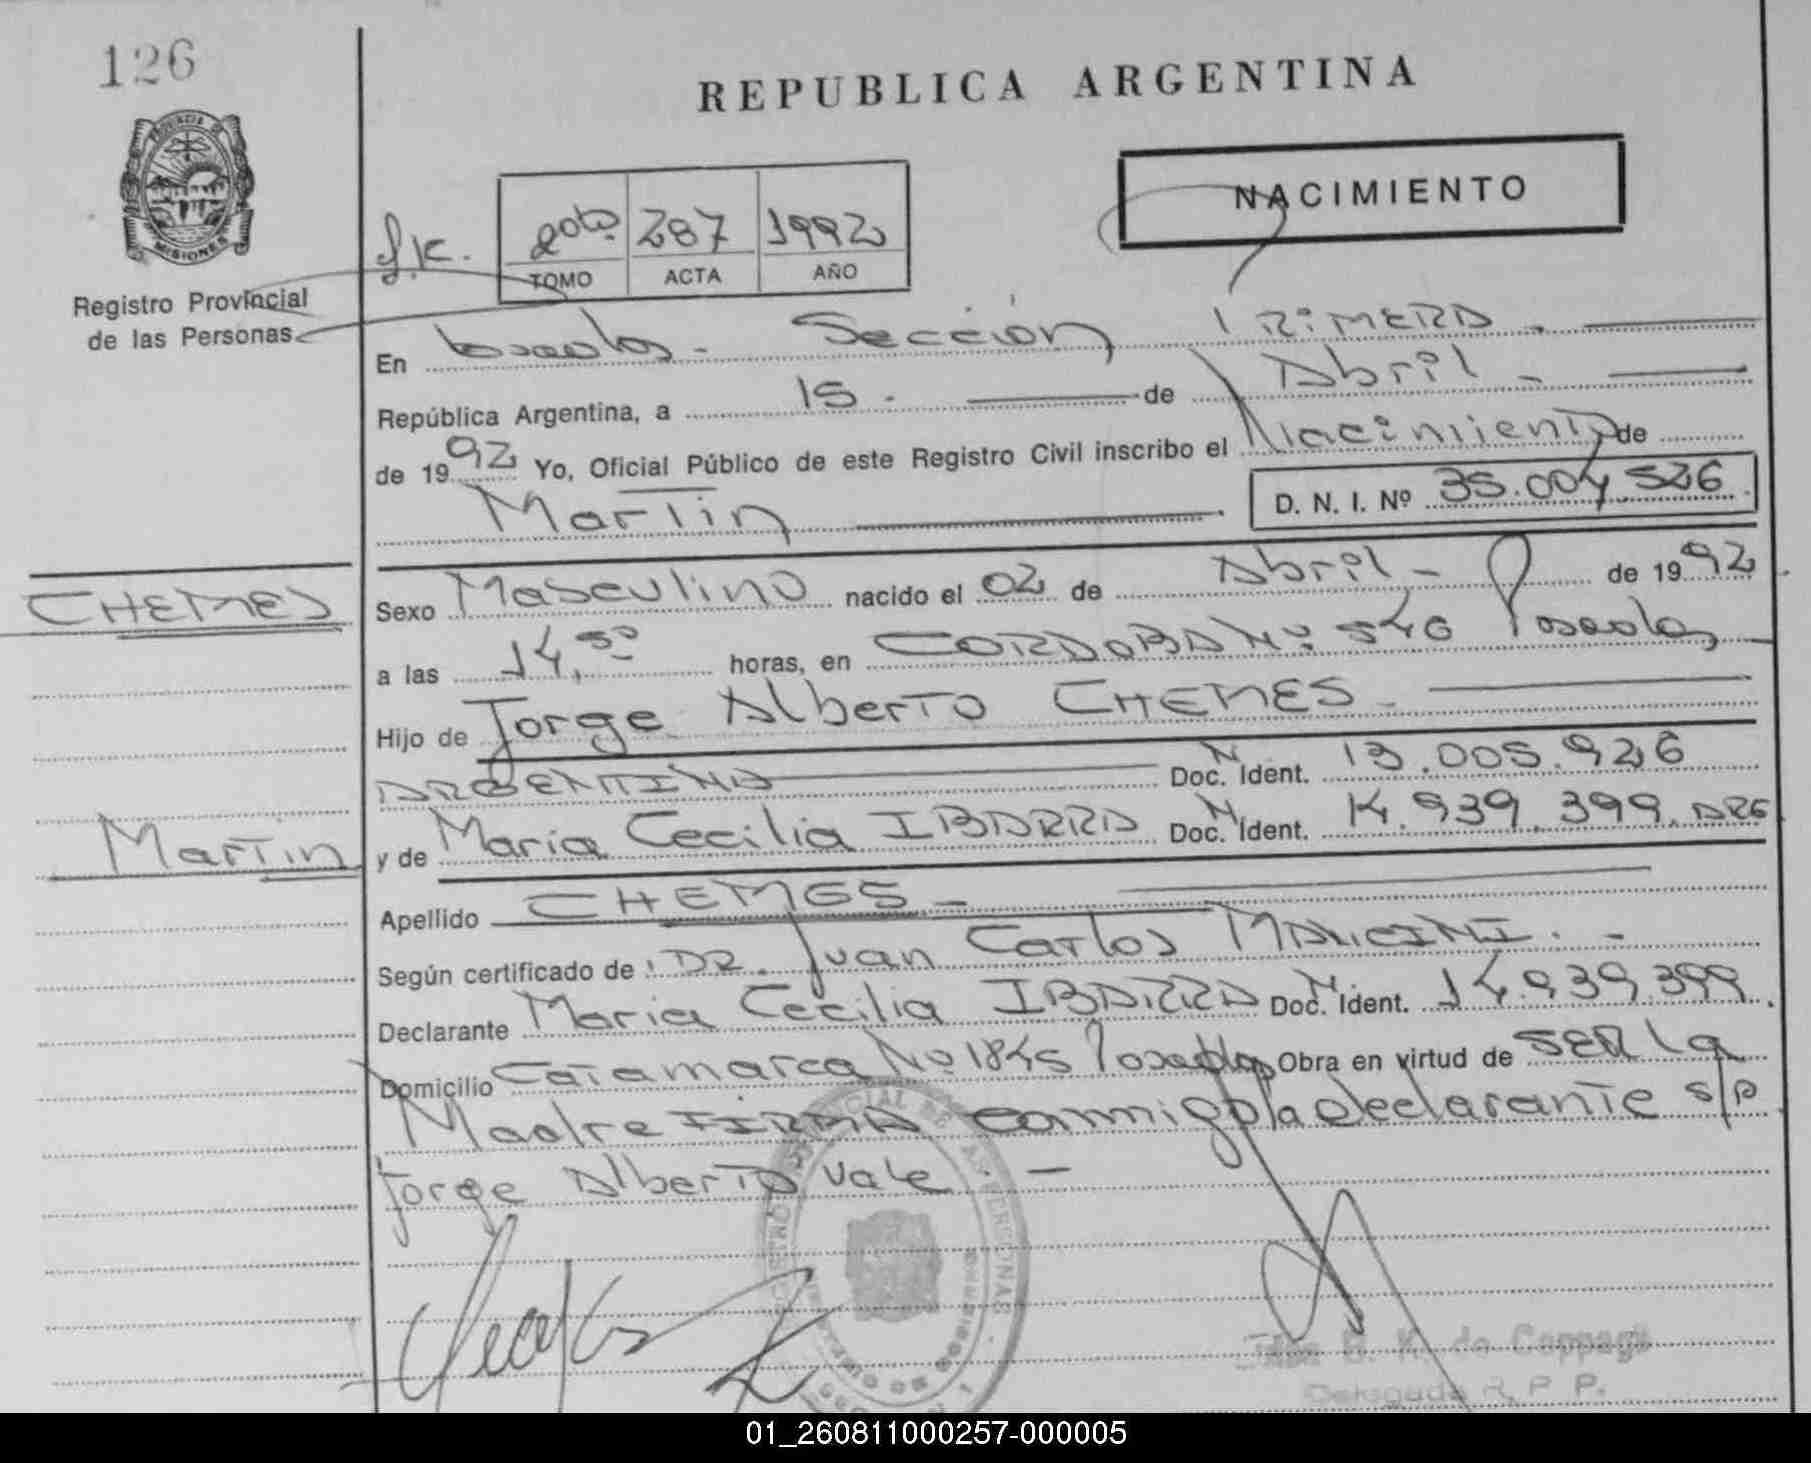 126
REPUBLICA ARGENTINA
PROVINCIA DE MISIONES
Registro Provincial
de las Personas
NACIMIENTO
2do 287 1992
TOMO ACTA AÑO
En Posadas - Sección PRiMERA. -
República Argentina, a 15. de Abril -
de 1992 Yo, Oficial Público de este Registro Civil inscribo el Nacimiento de
Martin
D. N. I. Nº 35.004.526
CHEMES
Sexo Masculino nacido el 02 de Abril - de 1992
a las 14,50 horas, en CORDOBA Nº 546 Posadas
Hijo de Jorge Alberto CHEMES -
ARGENTINA Doc. N Ident. 13.005.926
Martin
y de Maria Cecilia IBARRA Doc. N Ident. 14.939.399. ARG
Apellido CHEMES -
Según certificado de: DR. Juan Carlos MANCINI. -
Declarante Maria Cecilia IBARRA Doc. N Ident. 14.939.399.
Domicilio Catamarca No 1845 Posadas Obra en virtud de SER la
Madre FIRMA conmigo la declarante s/p
Jorge Alberto vale -
Delegada R. P. P.
01_260811000257-000005